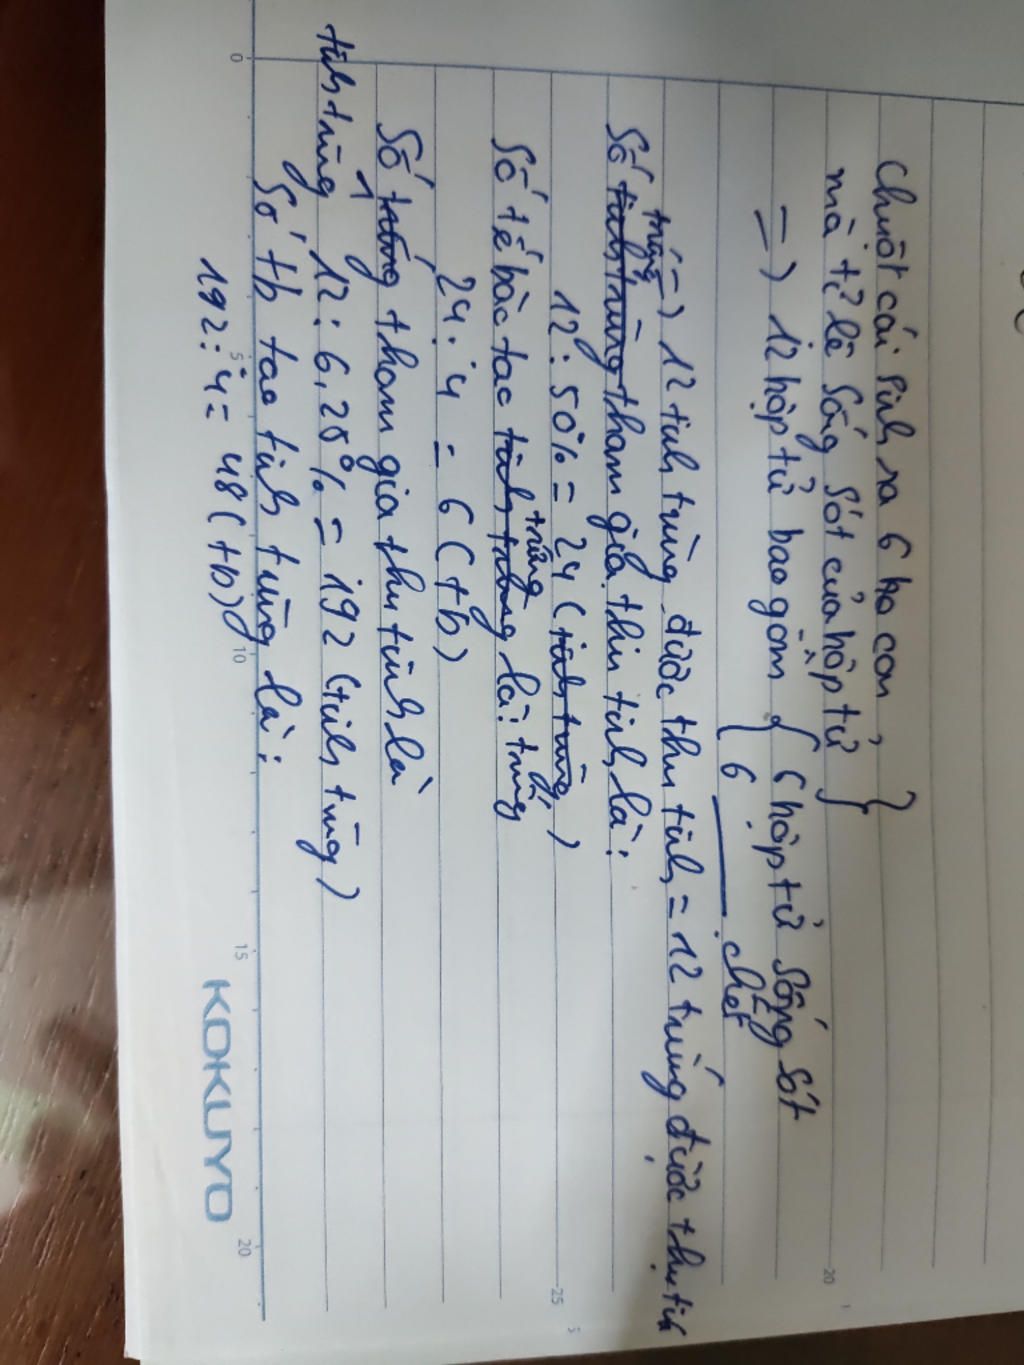 chuột cái sinh ra 6 ho con
mà tỉ lê sống sót của hợp tử
=) 12 hợp tử bao gồm { 6 hợp tử sống sót
6 ____ chết
=) 12 tinh trùng được thu tinh = 12 trứng được thụ tinh
trứng
Số tinh trùng tham gia thu tinh là:
12: 50% = 24 (tinh trùng)
trứng
Số tế bào tạo tinh trùng là: trứng
24: 4 = 6 (tb)
Số trứng tham gia thu tinh là
tinh trùng 12: 6,25% = 192 (tinh trùng)
Số tb tao tinh trùng là:
192: 4 = 48 (tb)
0 5 10 15 20
KOKUYO
20
25
5